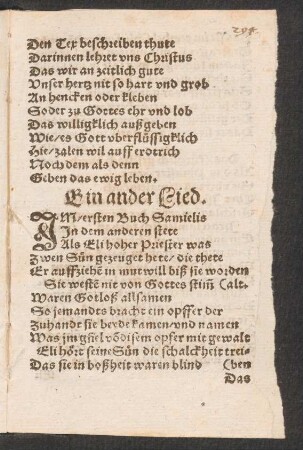 298.
Den Tex beschreiben thute
Darinnen lehret vns Christus
Das wir an zeitlich gute
Vnser hertz nit so hart vnd grob
An hencken oder kleben
So der zu Gottes ehr vnd lob
Das williglich außgeben
Wie/es Gott vberflüssigklich
Hie/zalen wil auff erdtrich
Noch dem als denn
Geben das ewig leben.
Ein ander Lied.
IM/ersten Buch Samielis
In dem anderen stete
Als Eli hoher Priester was
Zwen Sün gezeuget hete/die thete
Er auffziehẽ in mutwill biß sie worden
Sie westẽ nie von Gottes stim̃ (alt.
Waren Gotloß allsamen
So jemandts bracht ein opffer der
Zuhandt sie beyde kamen/vnd namen
Was jm gfiel võ disem opfer mit gewalt
Eli hört seine Sün die schalckheit trei-
Das sie in boßheit waren blind (ben
Das